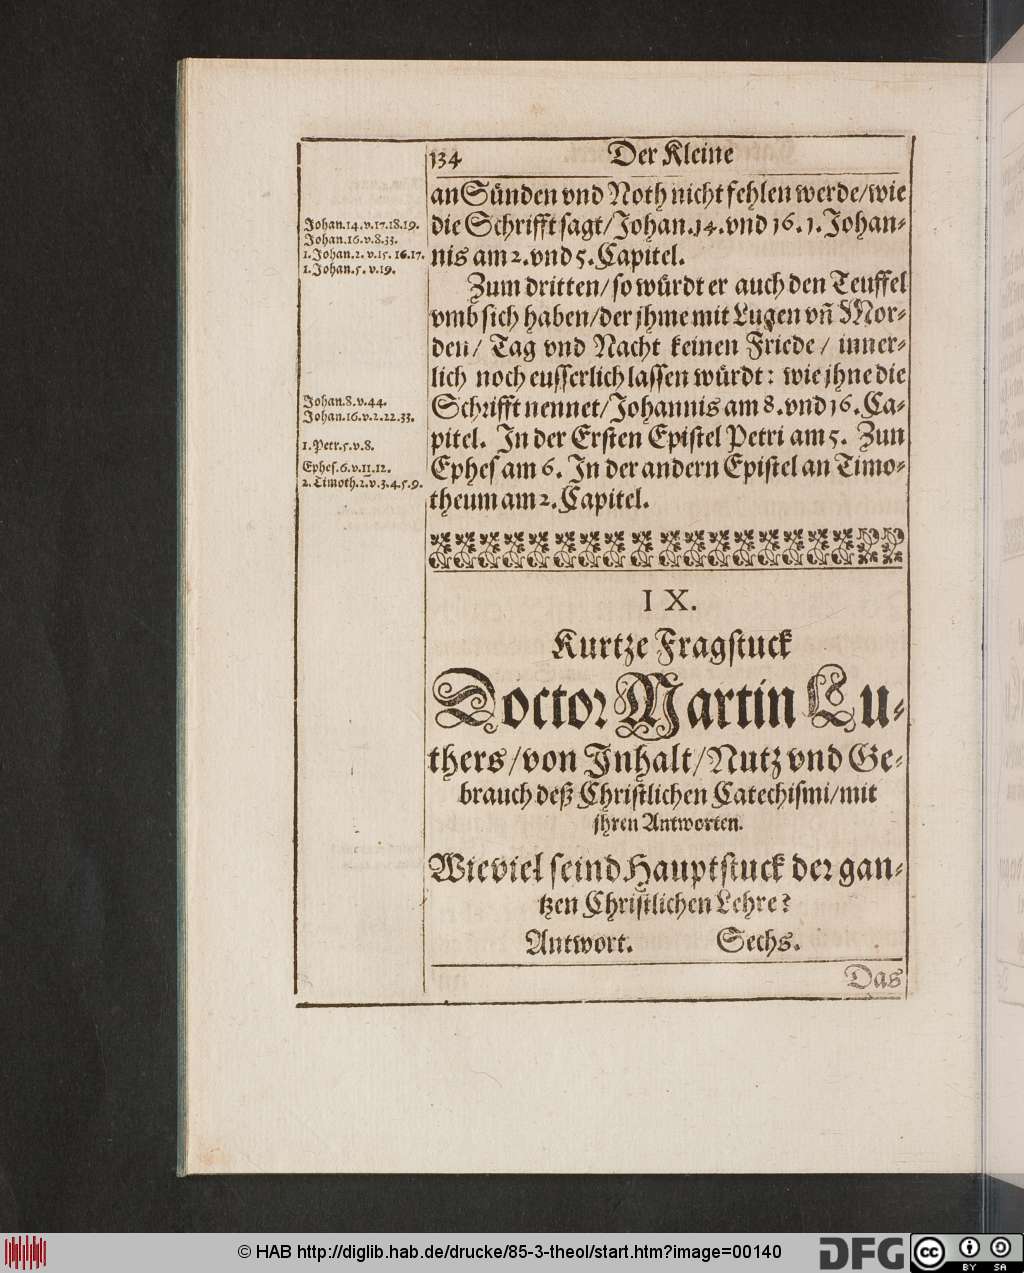 134 Der Kleine
an Sünden vnd Noth nicht fehlen werde/wie
die Schrifft sagt/Johan.14.vnd 16.1.Johan-
nis am 2.vnd 5.Capitel.
Johan.14.v.17.18.19.
Johan.16.v.8.33.
1.Johan.2.v.15.16.17.
1.Johan.5.v.19.
Zum dritten/so würdt er auch den Teuffel
vmb sich haben/der jhme mit Lugen vñ Mor-
den/ Tag vnd Nacht keinen Friede/ inner-
lich noch eusserlich lassen würdt: wie jhne die
Schrifft nennet/Johannis am 8.vnd 16.Ca-
pitel. In der Ersten Epistel Petri am 5. Zun
Ephes am 6. In der andern Epistel an Timo-
theum am 2.Capitel.
Johan.8.v.44.
Johan.16.v.2.22.33.
1.Petr.5.v.8.
Ephes.6.v.11.12.
2.Timoth.2.v.3.4.5.9.
IX.
Kurtze Fragstuck
Doctor Martin Lu-
thers/von Inhalt/Nutz vnd Ge-
brauch deß Christlichen Catechismi/mit
jhren Antworten.
Wieviel seind Hauptstuck der gan-
tzen Christlichen Lehre?
Antwort. Sechs.
Das
© HAB http://diglib.hab.de/drucke/85-3-theol/start.htm?image=00140
DFG
cc BY SA